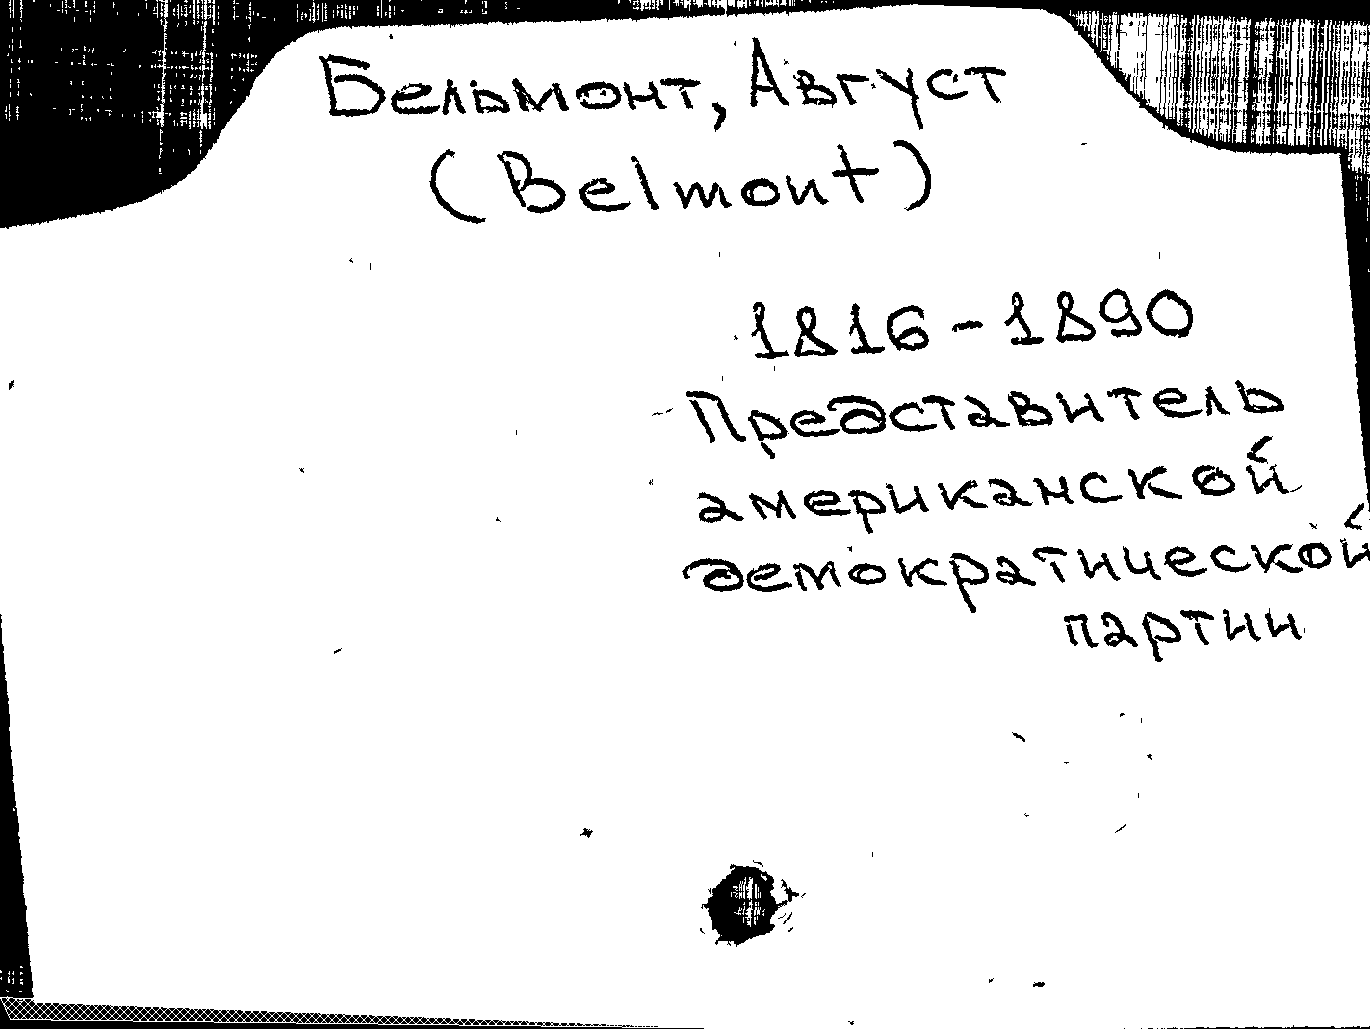 Бельмонт, Август
(Belmont)
1816-1890
Представитель
американской
демократической
партии